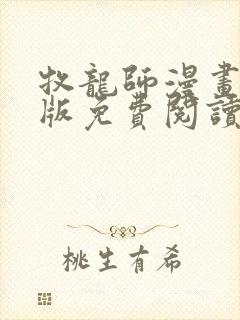 牧龍師漫畫
版免費閱讀
桃生有希